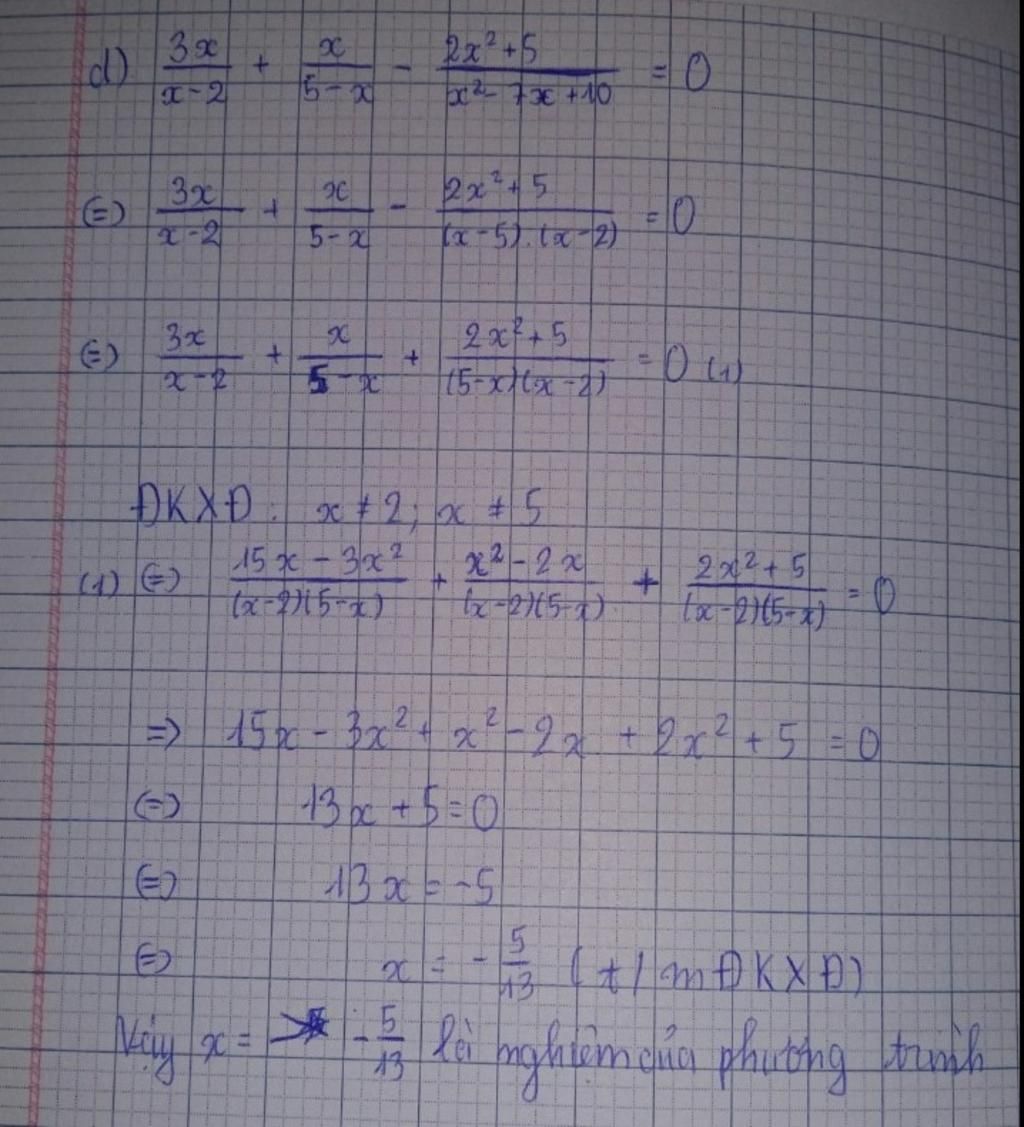 d) 3x/(x-2) + x/(5-x) - (2x²+5)/(x²-7x+10) = 0
(=) 3x/(x-2) + x/(5-x) - (2x²+5)/((x-5).(x-2)) = 0
(=) 3x/(x-2) + x/(5-x) + (2x²+5)/((5-x)(x-2)) = 0 (1)
ĐKXĐ: x ≠ 2; x ≠ 5
(1) (=) (15x-3x²)/((x-2)(5-x)) + (x²-2x)/((x-2)(5-x)) + (2x²+5)/((x-2)(5-x)) = 0
=> 15x - 3x² + x² - 2x + 2x² + 5 = 0
(=) 13x + 5 = 0
(=) 13x = -5
(=) x = -5/13 (t/m ĐKXĐ)
Vậy x = -5/13 là nghiệm của phương trình